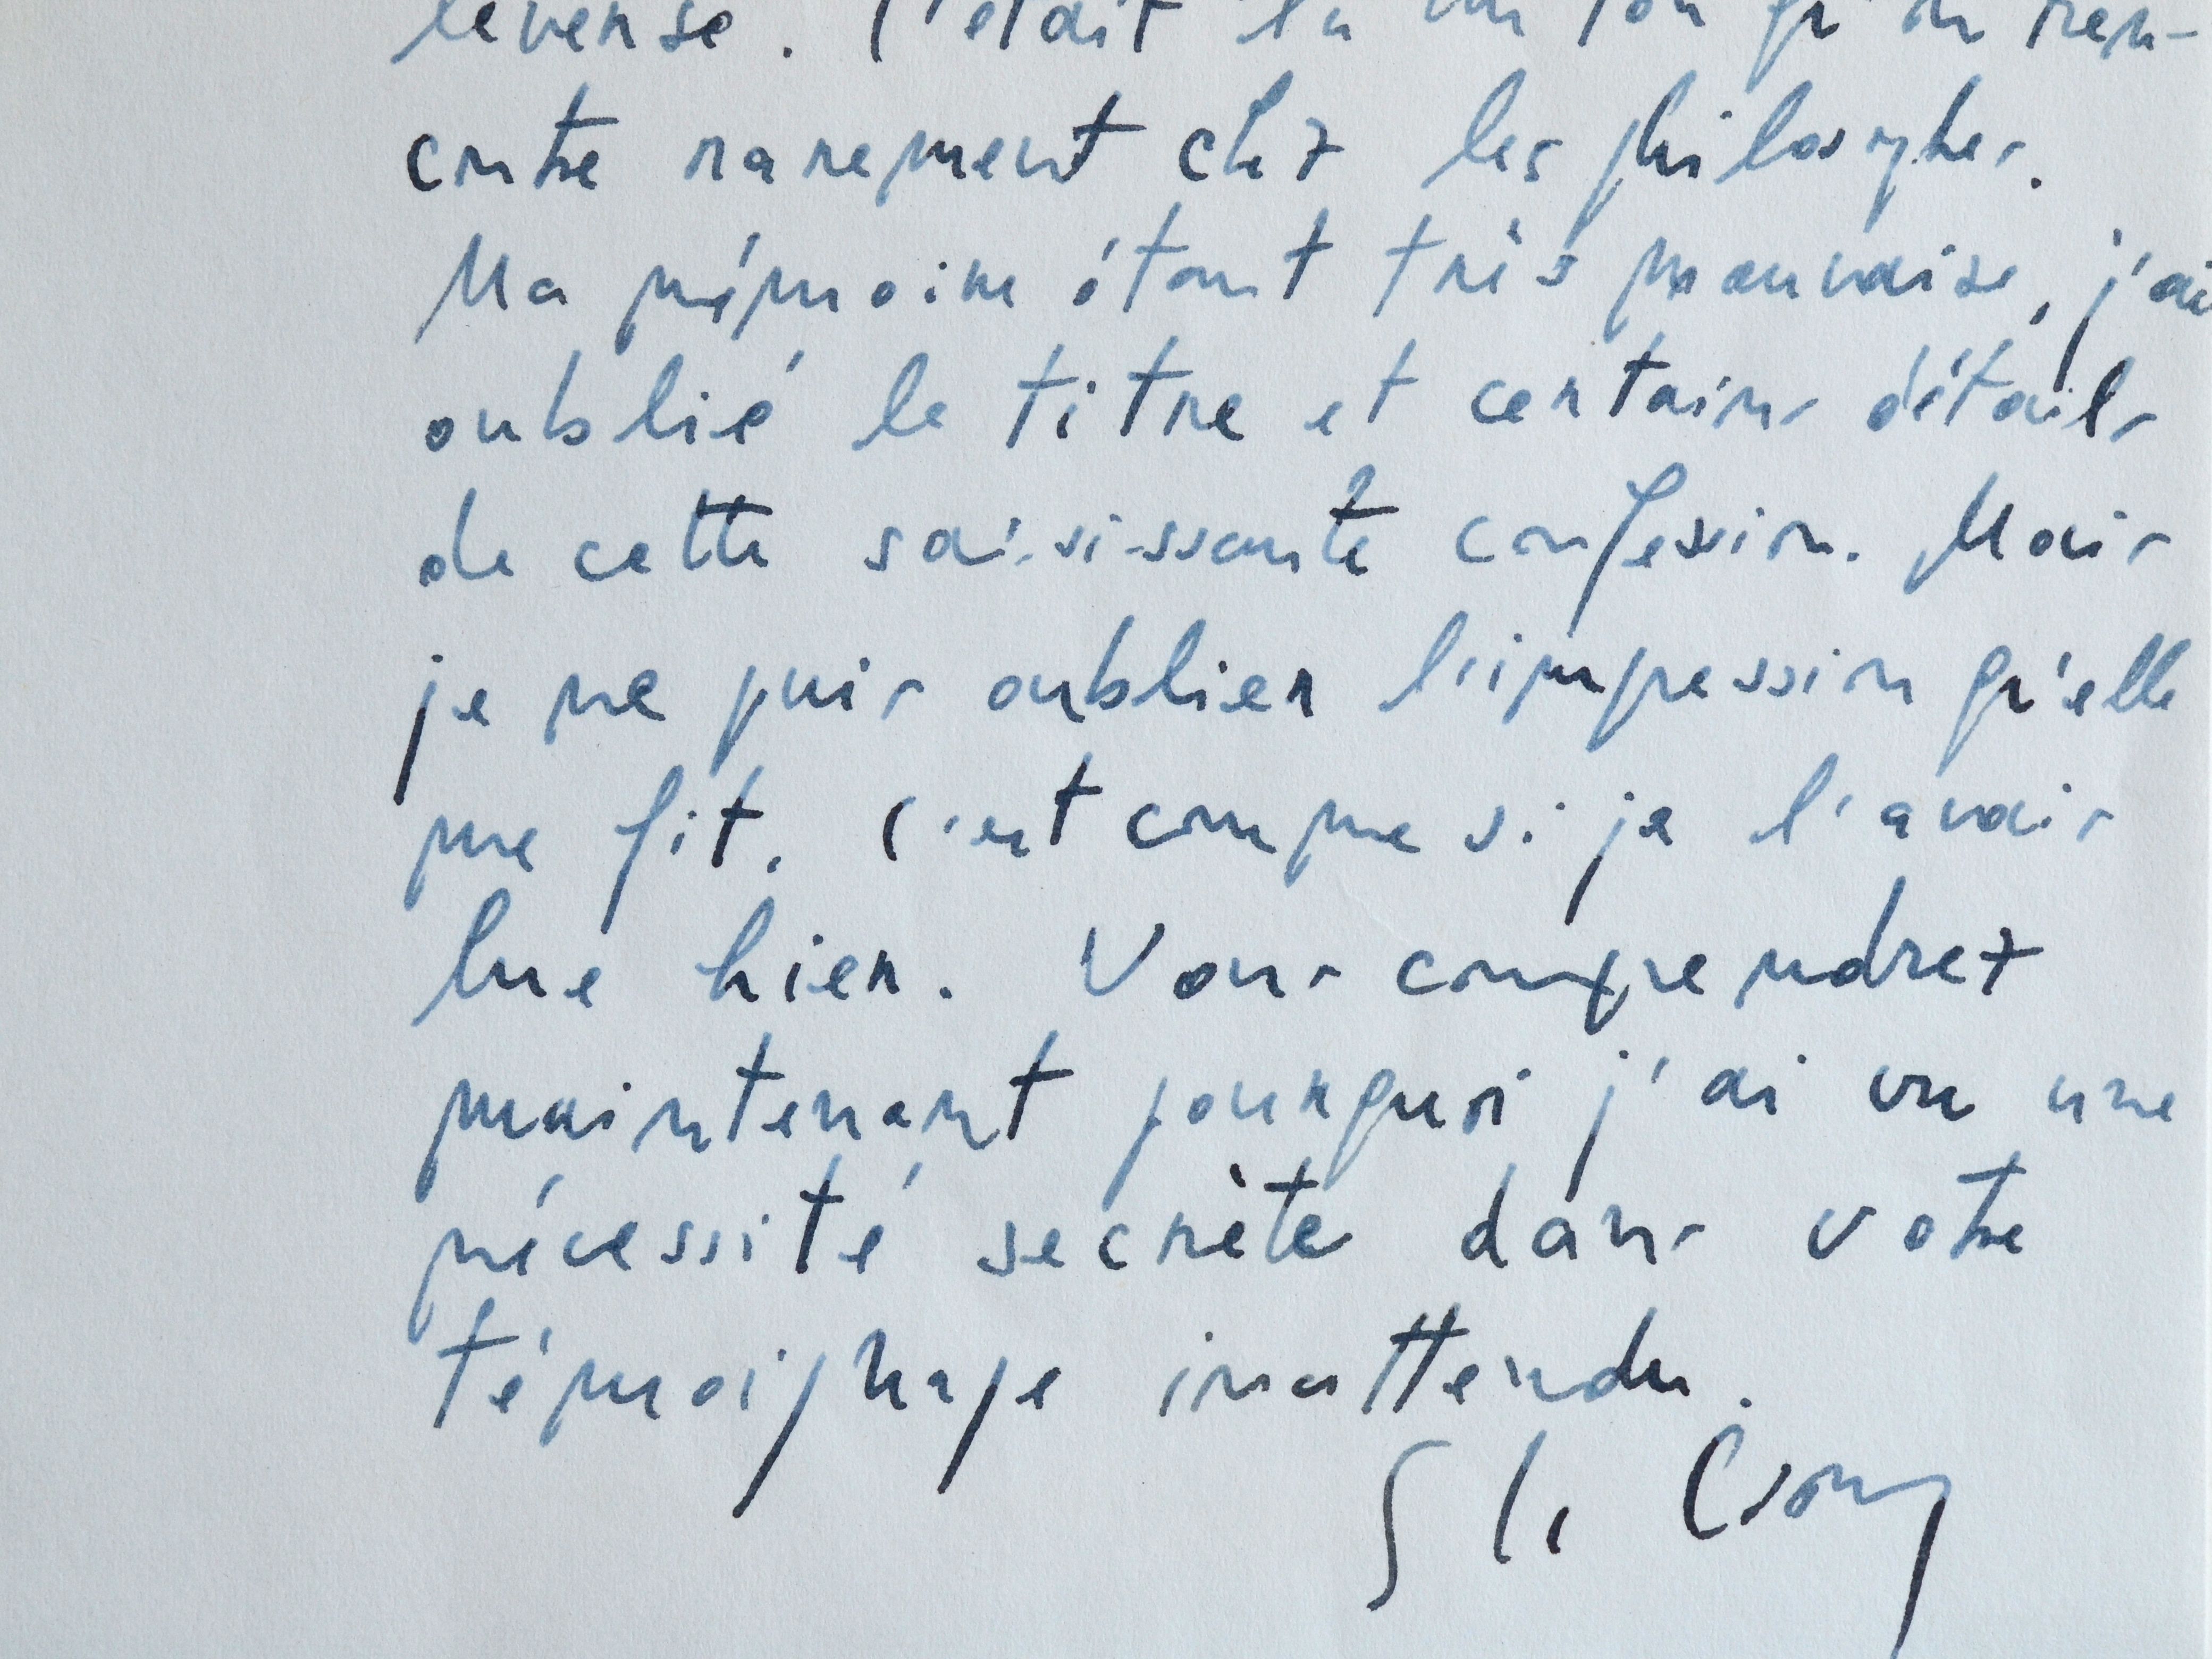 C'était là un ton qu'on ren-
contre rarement chez les philosophes.
Ma mémoire étant très mauvaise, j'ai
oublié le titre et certains détails
de cette saisissante confession. Mais
je ne puis oublier l'impression qu'elle
me fit. C'est comme si je l'avais
lue hier. Vous comprendrez
maintenant pourquoi j'ai vu une
nécessité secrète dans votre
témoignage inattendu.
Cioran